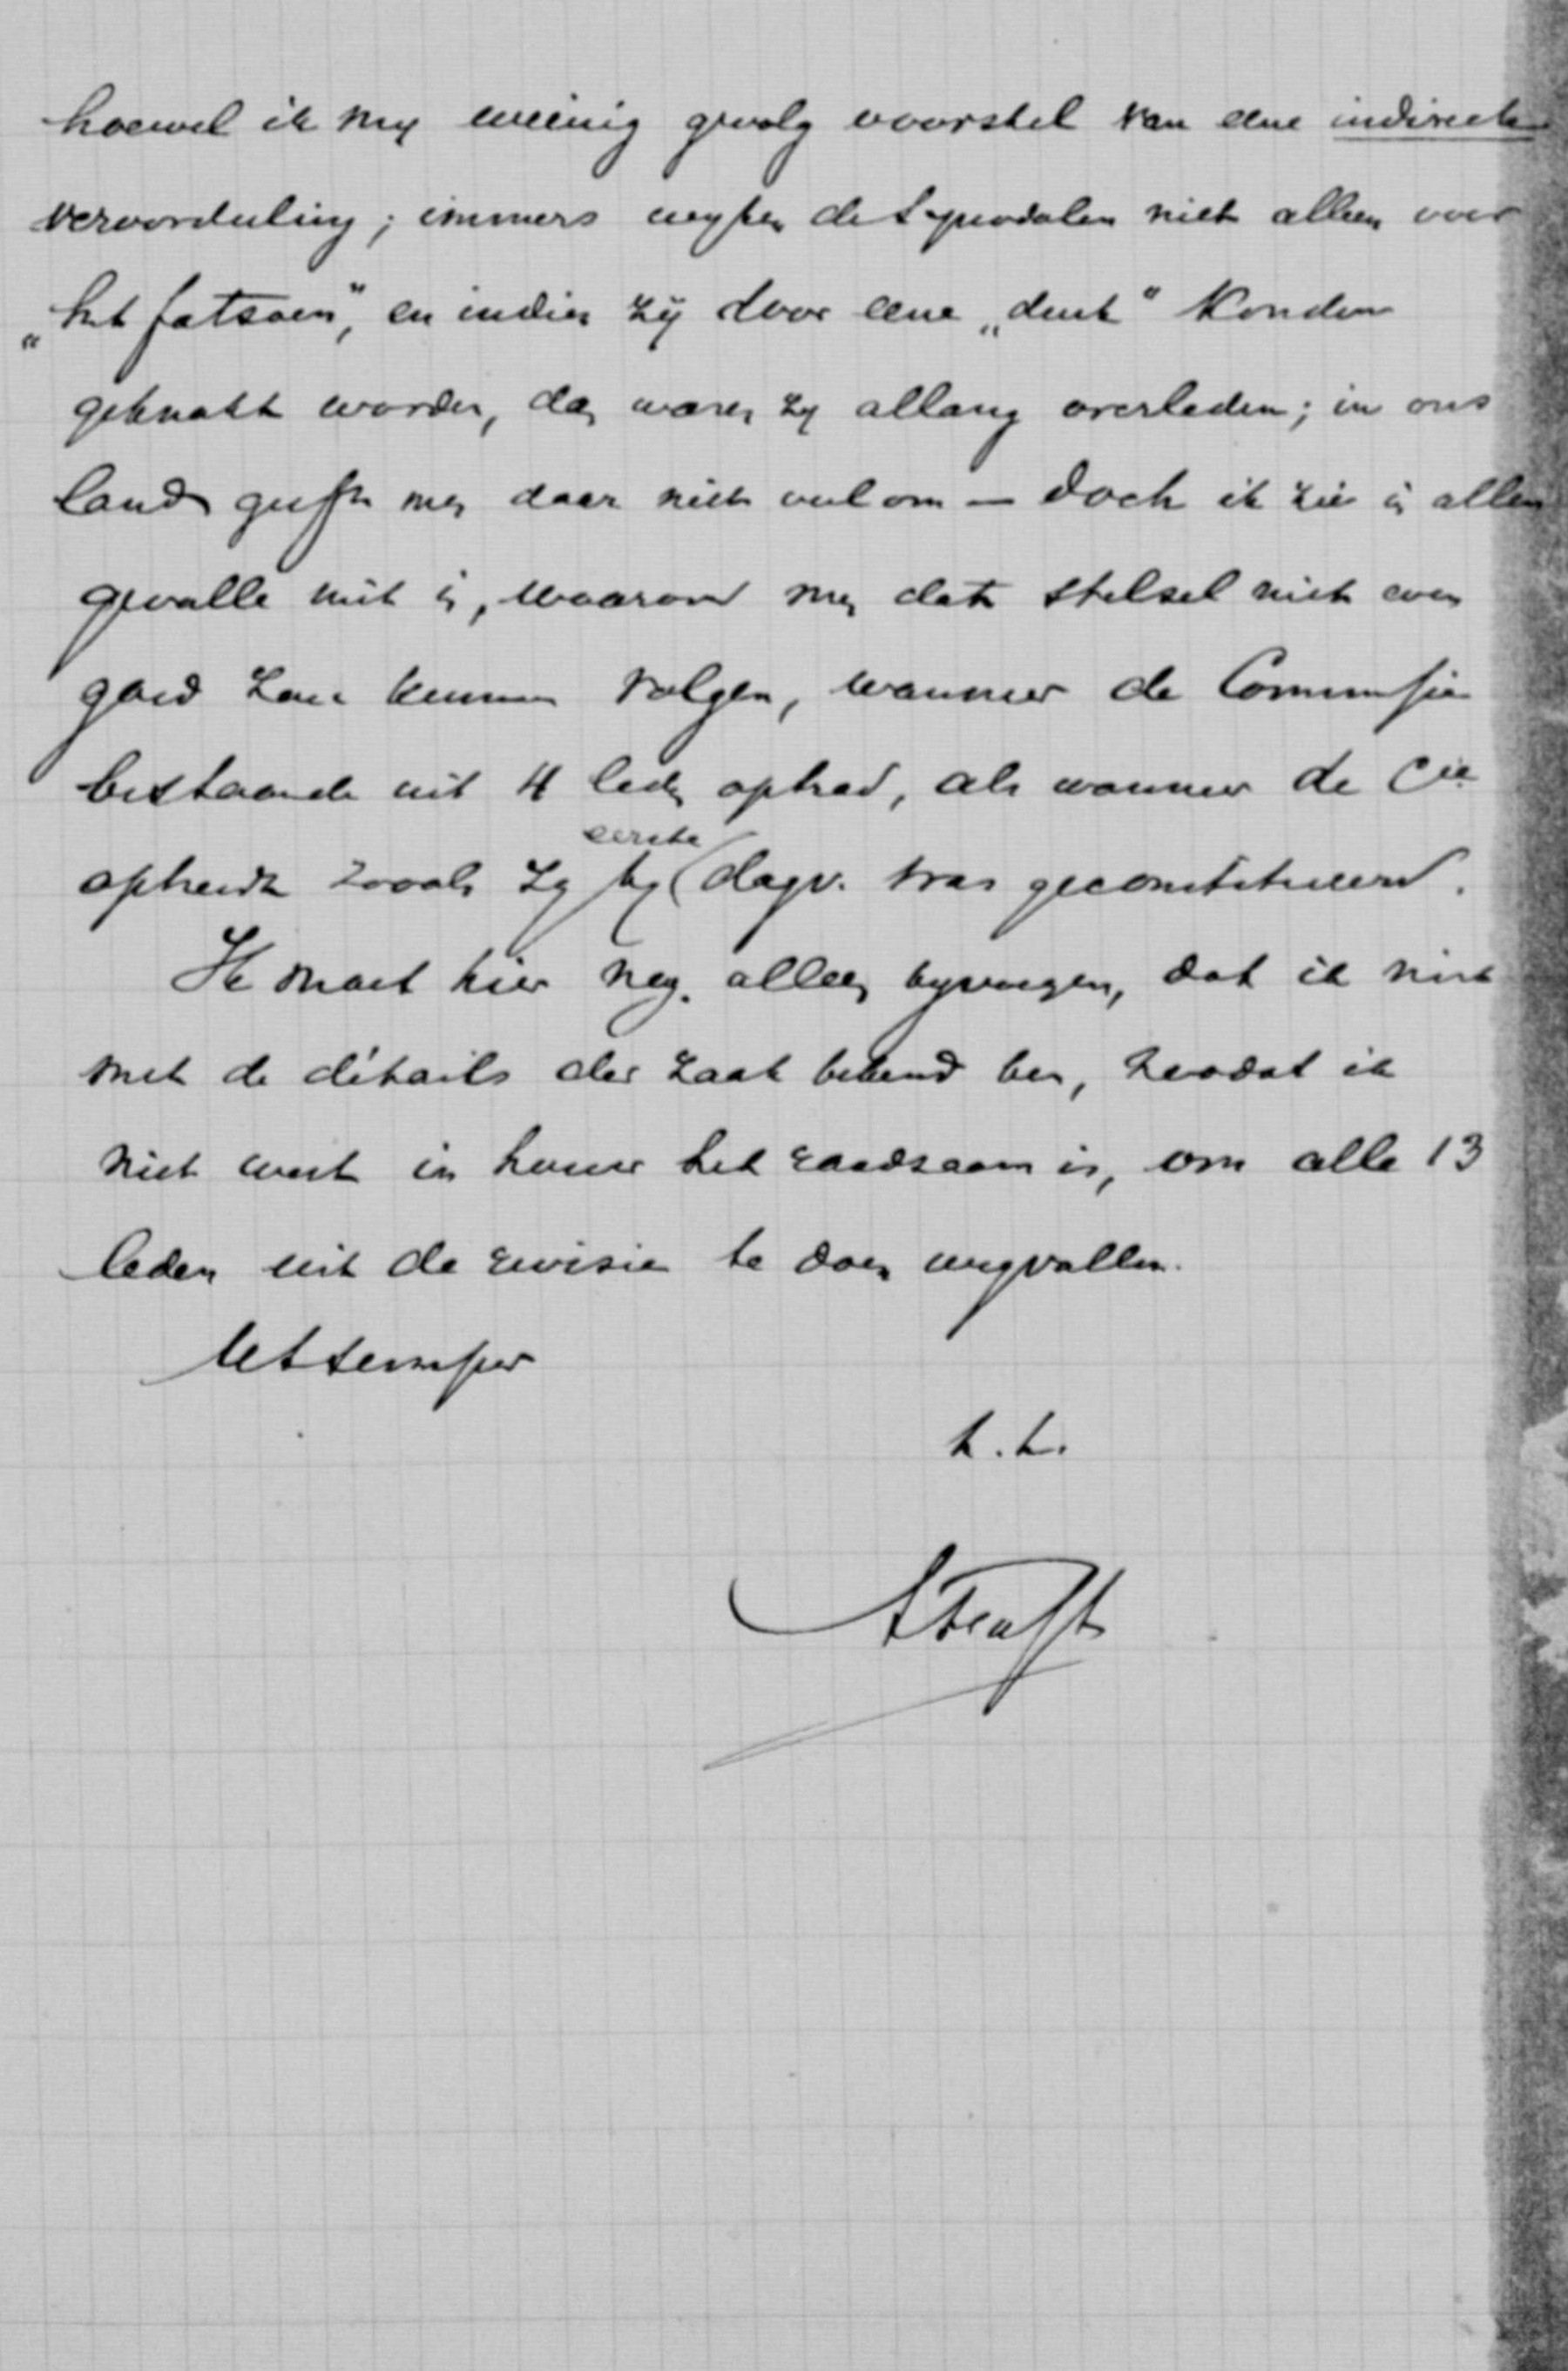 hoewel ik my weinig gevolg voorstel van eene indirecte
veroordeeling; immers wyken de Synodalen niet alleen voor
„het fatsoen”, en indien zij door eene „deuk” konden
geknakt worden, dan waren zy allang overleden; in ons
land geeft men daar niet veel om — doch ik zie in allen
gevalle niet in, waarom men dat stelsel niet even
goed zou kunnen volgen, wanneer de Commissie
bestaande uit 4 leden optrad, als wanneer de Cie
optreedt zooals zy by eerste dagv. was geconstitueerd.
Ik moet hier nog alleen byvoegen, dat ik niet
met de détails der zaak bekend ben, zoodat ik
niet weet in hoever het raadzaam is, om alle 13
leden uit de revisie te doen wegvallen.
t.t.